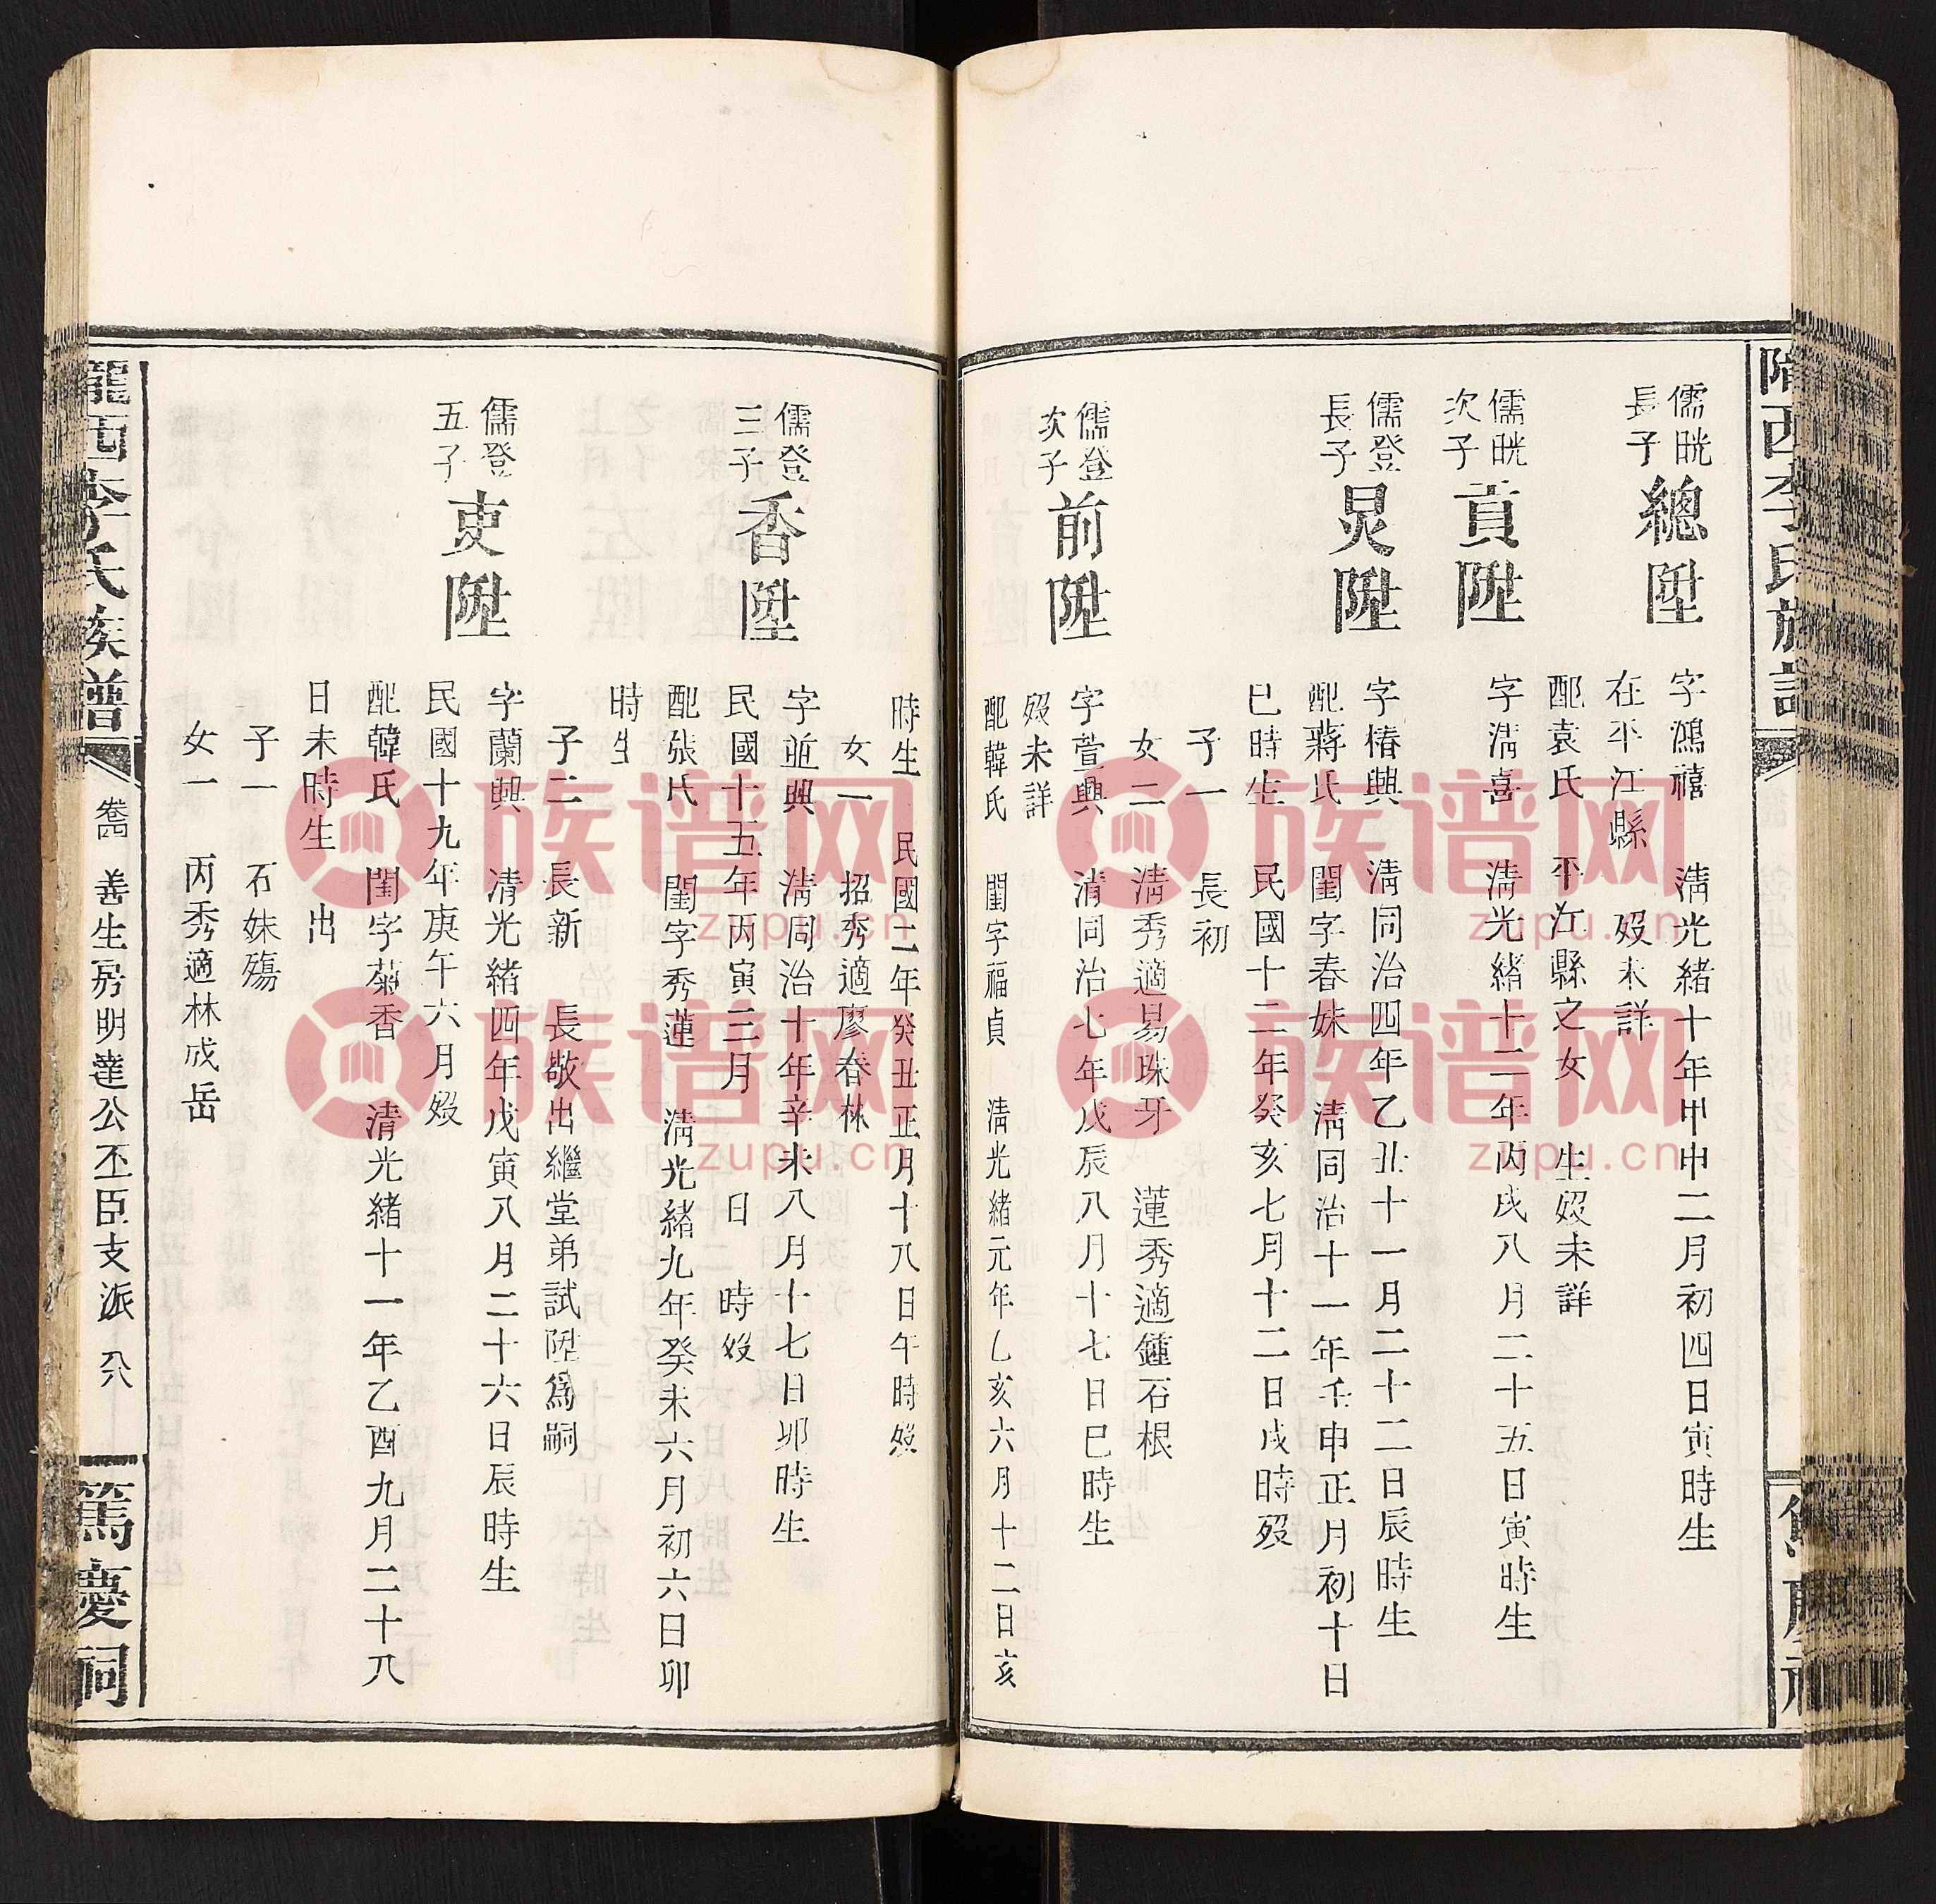 隴西李氏族譜
儒晄
長子
總陞
字鴻禧 淸光緒十年甲申二月初四日寅時生
在平江縣 歿未詳
配袁氏 平江縣之女 生歿未詳
儒晄
次子
貢陞
字淸喜 淸光緒十二年丙戌八月二十五日寅時生
儒登
長子
炅陞
字椿興 淸同治四年乙丑十一月二十二日辰時生
配蔣氏 閨字春妹 淸同治十一年壬申正月初十日
巳時生 民國十二年癸亥七月十二日戌時歿
子一 長初
女二 淸秀適易珠牙 蓮秀適鍾石根
儒登
次子
前陞
字萱興 淸同治七年戊辰八月十七日巳時生
歿未詳
配韓氏 閨字福貞 淸光緒元年乙亥六月十二日亥
時生 民國二年癸丑正月十八日午時歿
女一 招秀適廖春林
儒登
三子
香陞
字並興 淸同治十年辛未八月十七日卯時生
民國十五年丙寅三月 日 時歿
配張氏 閨字秀蓮 淸光緒九年癸未六月初六日卯
時生
子二 長新 長敬出繼堂弟試陞爲嗣
儒登
五子
吏陞
字蘭興 淸光緒四年戊寅八月二十六日辰時生
民國十九年庚午六月歿
配韓氏 閨字菊香 淸光緒十一年乙酉九月二十八
日未時生 出
子一 石妹殤
女一 丙秀適林成岳
隴西李氏族譜 善生房明達公丕臣支派 篤慶祠
族谱网
zupu.cn
族谱网
zupu.cn
族谱网
zupu.cn
族谱网
zupu.cn